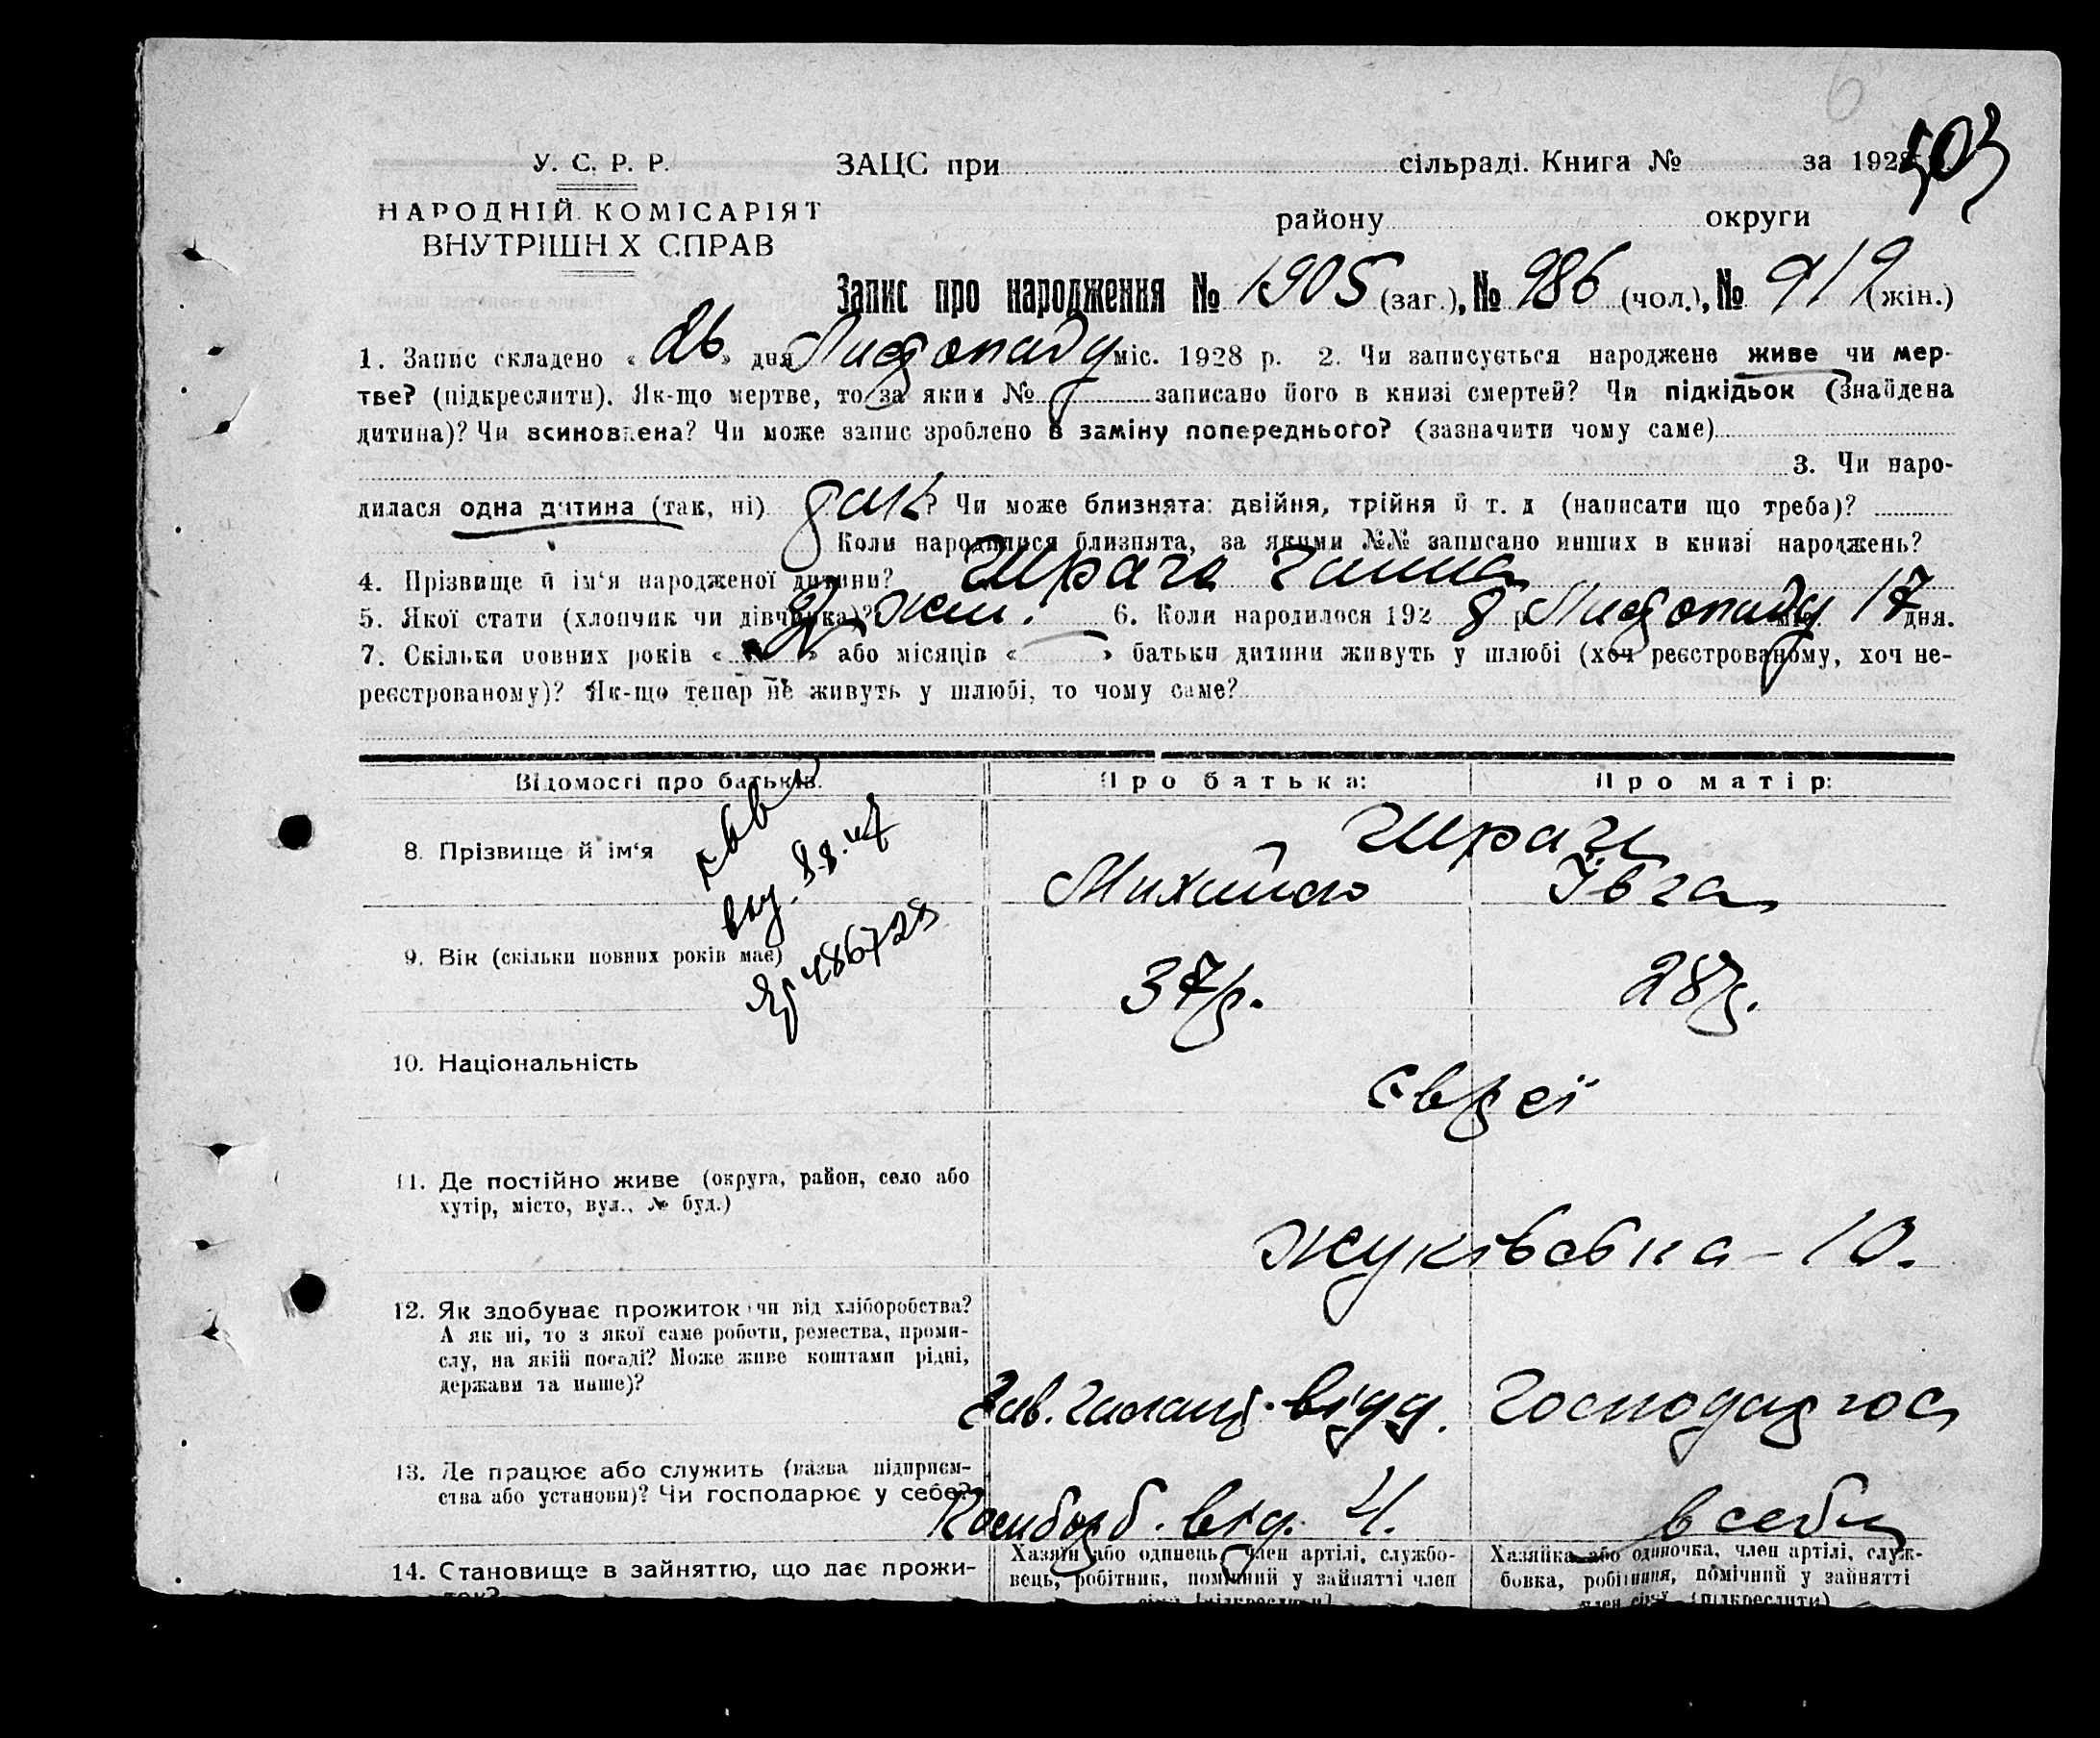 6
503
У. С. Р. Р.
НАРОДНІЙ КОМІСАРІЯТ
ВНУТРІШН Х СПРАВ
ЗАЦС при сільраді. Книга № за 1928
району округи
Запис про народження № 1905 (заг.), № 986 (чол.), № 919 (жін.)
1. Запис складено « 26 » дня Листопаду міс. 1928 р. 2. Чи записується народжене живе чи мер-
тве? (підкреслити). Як-що мертве, то за яким № записано його в книзі смертей? Чи підкідьок (знайдена
дитина)? Чи всиновлена? Чи може запис зроблено в заміну попереднього? (зазначити чому саме)
3. Чи наро-
дилася одна дитина (так, ні) так ? Чи може близнята: двійня, трійня й т. д (написати що треба)?
Коли народилися близнята, за якими №№ записано инших в книзі народжень?
4. Прізвище й ім‘я народженої дитини? Шраги Ганна
5. Якої стати (хлопчик чи дівчинка)? жін. 6. Коли народилося 192 8 р Листопаду міс. 17 дня.
7. Скільки повних років « » або місяців « » батьки дитини живуть у шлюбі (хоч реєстрованому, хоч не-
реєстрованому)? Як-що тепер не живуть у шлюбі, то чому саме?
Відомості про батьків. Про батька: Про матір:
8. Прізвище й ім‘я Шраги
Михайло Ївга
9. Вік (скільки повних років має) 37 р. 28 р.
10. Національність євреї
11. Де постійно живе (округа, район, село або
хутір, місто, вул., № буд.)
10.
12. Як здобуває прожиток чи від хліборобства?
А як ні, то з якої саме роботи, ремества, проми-
слу, на якій посаді? Може живе коштами рідні,
держави та инше)?
Зав. Галант. відд. Господарює
13. Де працює або служить (назва підприєм-
ства або установи)? Чи господарює у себе?
від. 4. в себе
14. Становище в зайняттю, що дає прожи-
ток?
Хазяїн або одинець, член артілі, службо-
вець, робітник, помічний у зайнятті член
Хазяйка або одиночка, член артілі, служ-
бовка, робітниця, помічний у зайнятті
член сім'ї (підкреслити)